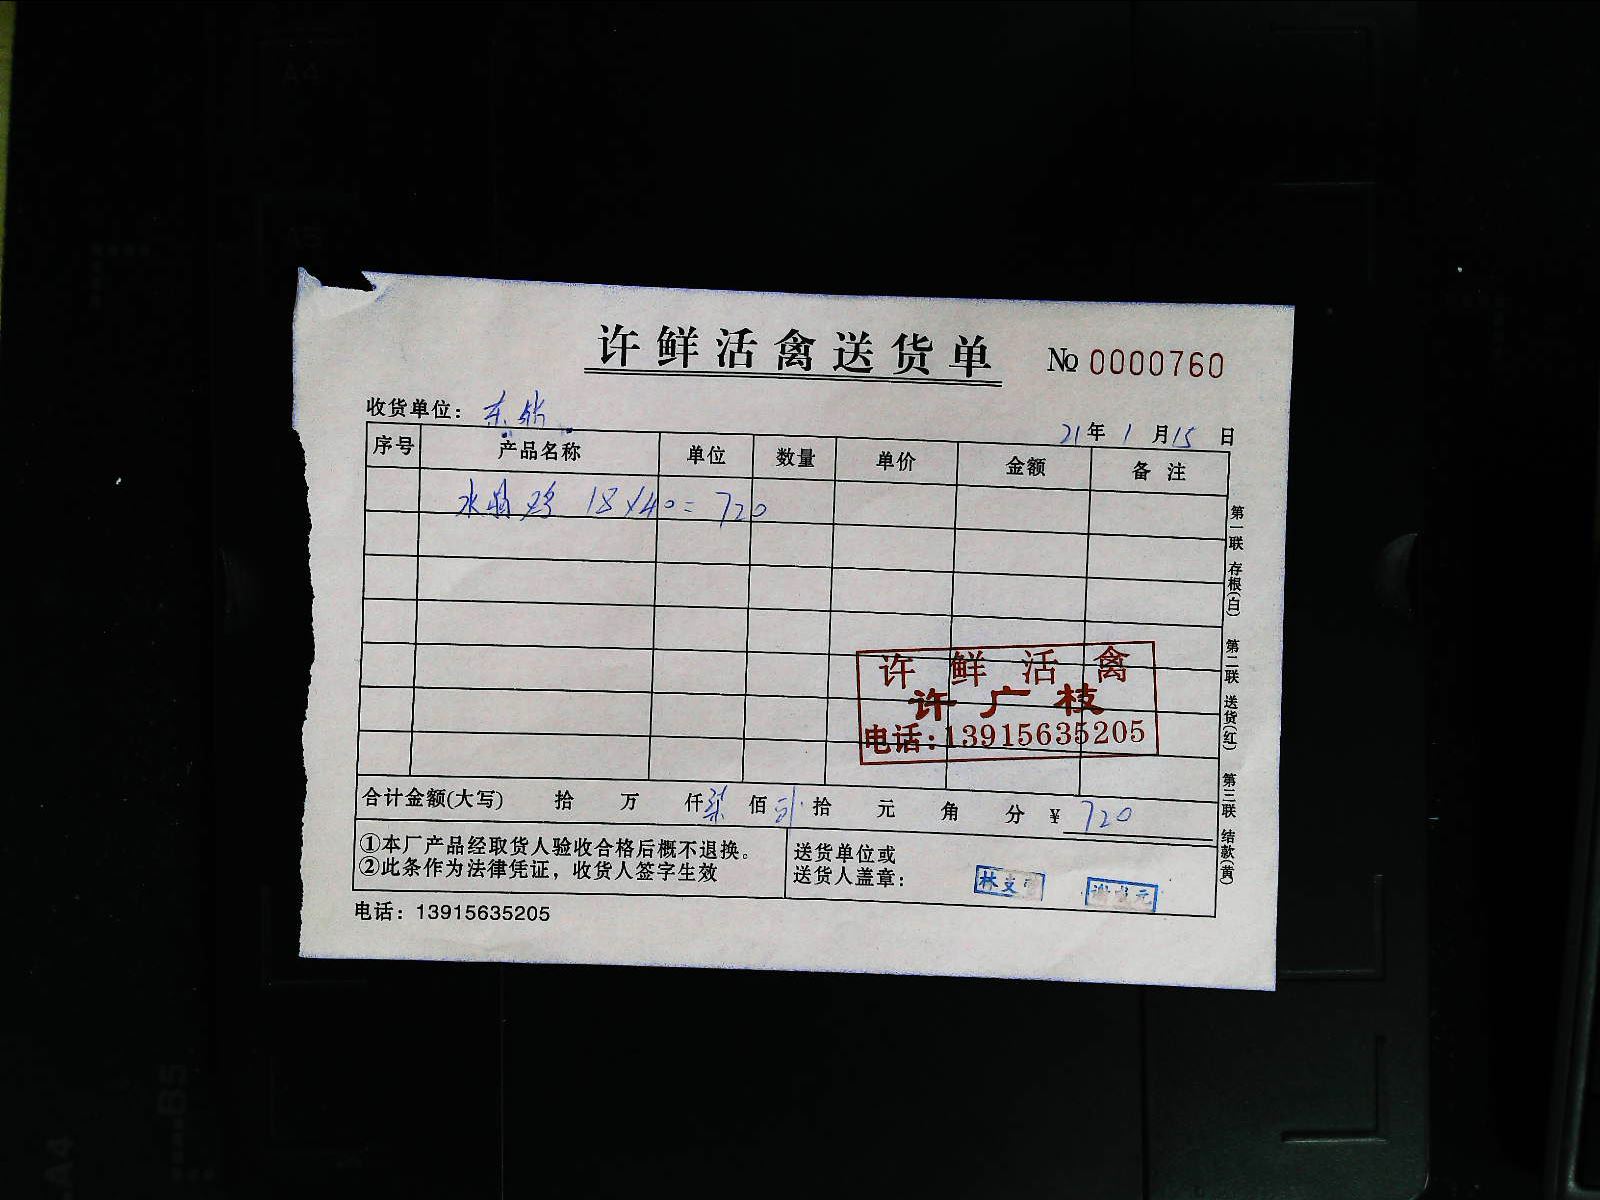 许鲜活禽送货单 № 0000760
收货单位：东
21年 1月15日
序号 产品名称 单位 数量 单价 金额 备注
水 鸡 18×40=720
许鲜活禽
许广枝
电话:13915635205
合计金额(大写) 拾 万 仟柒佰贰拾 元 角 分 ¥ 720
①本厂产品经取货人验收合格后概不退换。
②此条作为法律凭证，收货人签字生效
送货单位或
送货人盖章：
林支
元
电话：13915635205
第一联 存根(白) 第二联 送货(红) 第三联 结款(黄)
A4
B5
A4